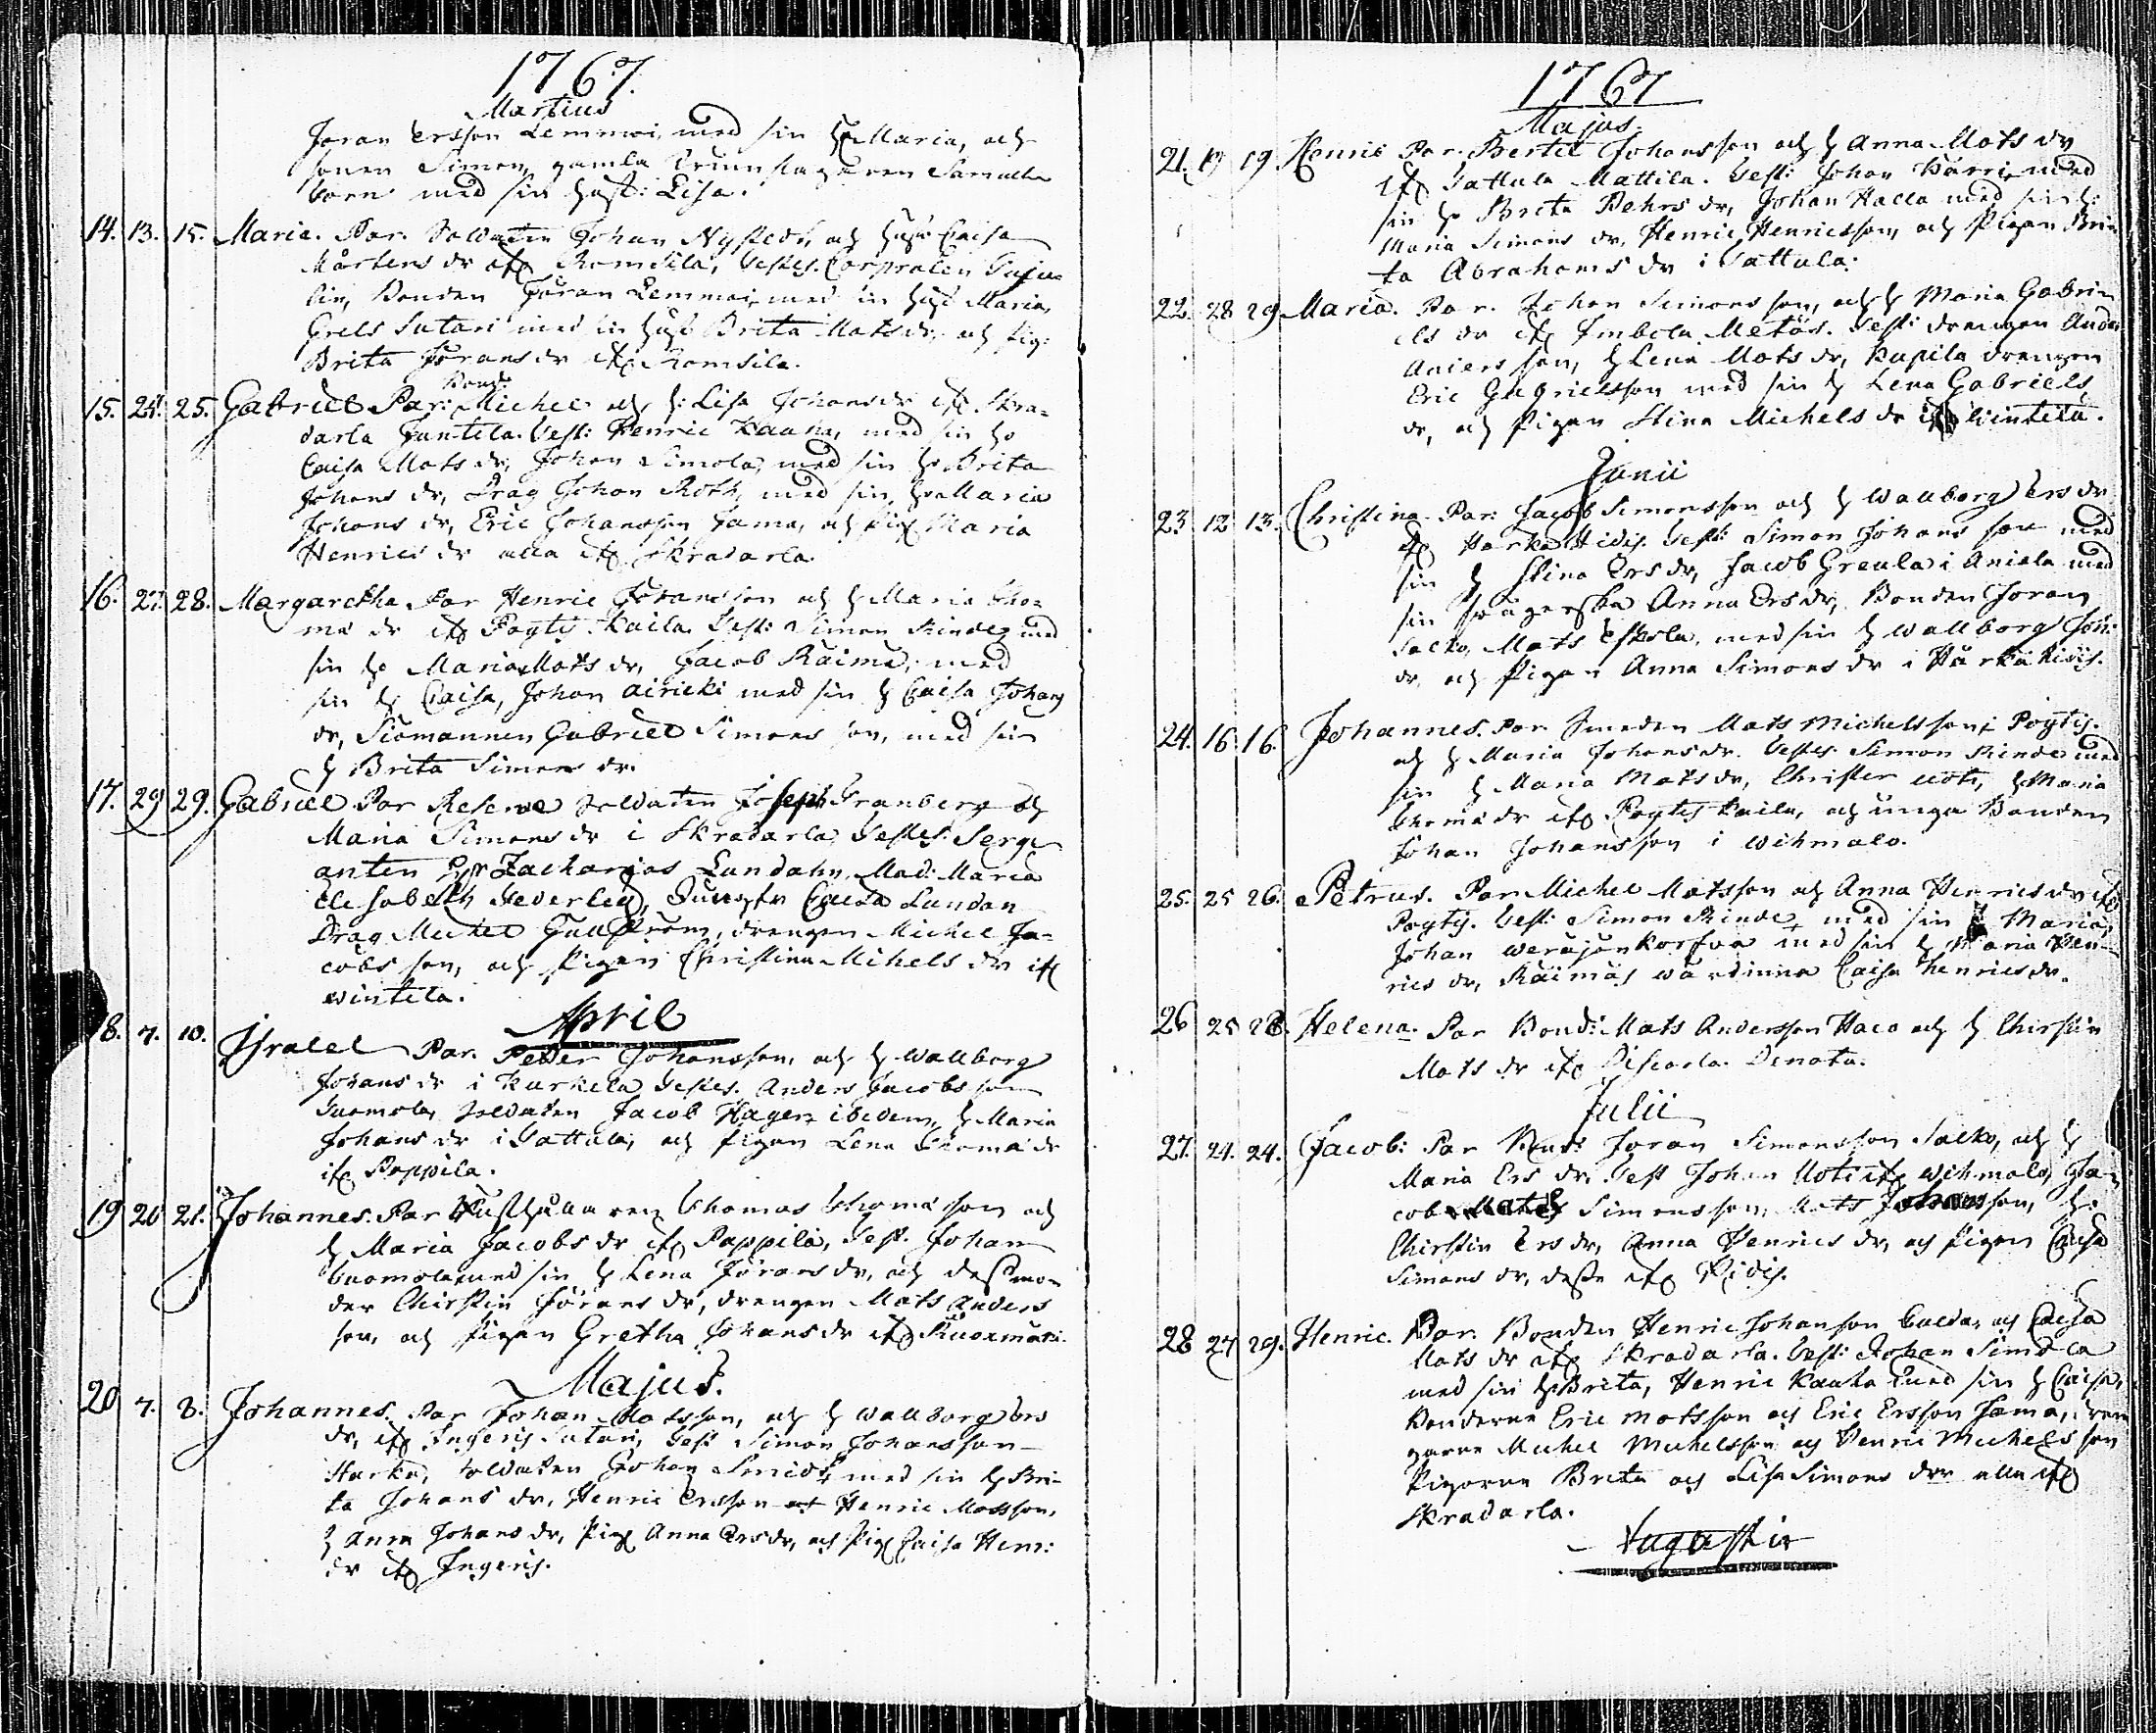 1767.
Martius
Joran Ersson Lemmoi, med sin H Maria, och
sonen Simon, gamla
med sin Hust: Lisa.
14. 13. 15. Maria. Par. Soldaten Johan Nystedt, och Hustr Caisa
Mårtens dr Romsila, Testes. Corpralen
lin, Bonden Joran Lemmoi, med sin Hust Maria,
Grels Sutari med sin Hust Brita Mats dr, och Pig:
Brita Jorans dr ifr Romsila.
Bond.
15. 24. 25. Gabriel Par: Michel och H: Lisa Johans dr ifr Skra-
darla Juntila. Test: Henric Kaana, med sin H
Caisa Mats dr, Johan Simola, med sin H Brita
Johans dr, Drag Johan Roth, med sin H Maria
Johans dr, Eric Johansson Jama, och Pig Maria
Henrics dr alla ifr Skradarla.
16. 27. 28. Margaretha Par Henric Johansson och H Maria Tho-
mæ dr ifr Pogtij Kaila. Test: Simon Rinde med
sin H Maria Mats dr, Jacob Raimä, med
sin H Caisa, Johan Airicki med sin H Caisa Johans
dr, Siömannen Gabriel Simons son, med sin
H Brita Simons dr.
17. 29 29. Gabriel Par Reserve Soldaten Joseph Granberg och
Maria Simons dr i Skradarla, Testes. Serge
anten Hr Zacharias Lundahn, Mad: Maria
Elisabeth Jungfr Caisa Lundan
Drag Michel drengen Michel Ja-
cobs son, och Pigan Christina Mihels dr ifr
wintela.
April
18. 7. 10. Israel Par. Petter Johansson, och H Wallborg
Johans dr i Karkela Testes. Anders Jacobs son
Tuomola, Soldaten Jacob Hagen ibidem, H Maria
Johans dr i Tattula, och Pigan Lena Thomæ dr
ifr Pappila.
19 20 21. Johannes. Par Rusthållaren Thomas Thomæ son och
H Maria Jacobs dr ifr Pappila, Test. Johan
Tuomola med sin H Lena Jörans dr, och dess mo-
der Chirstin Jörans dr, drengen Mats Anders
son, och Pigan Gretha Johans dr ifr
Majus.
20 7. 8. Johannes. Par Johan Matsson, och H Wallborg Ers
dr, ifr Ingeris Sutari, Test Simon Johansson
Harka, Soldaten Johan Smidt, med sin H Bri-
ta Johans dr, Henric Ersson och Henric Matsson,
H Anna Johans dr, Pig Anna Ers dr, och Pig Caisa Henr:
dr ifr Ingeris.
1767
Majus.
21. 17 19. Henric Par. Bertil Johansson och H Anna Mats dr
ifr Tattula Mattila. Test: Johan Harri, med
sin H Brita Pehrs dr, Johan Halla med sin H:
Maria Simons dr, Henric Henricsson, och Pigan Bri-
ta Abrahams dr i Tattula.
22. 28 29. Maria. Par. Johan Simons son, och H Maria Gabri-
els dr ifr Imbola Metäs. Test: drengen Anders
Anders son, H Lena Mats dr, Kapila drengen
Eric Gabrielsson med sin H Lena Gabriels
dr, och Pigan Stina Michels dr ifr Wintela.
Junii
23 12 13. Christina. Par: Jacob Simonsson och H Wallborg Ers dr
ifr Harka Hidis. Test: Simon Johans son med
sin H Stina Ers dr, Jacob Greula i Aniala med
sin swägerska Anna Ers dr, Bonden Joran
Salko, Mats Eskola, med sin H Wallborg Joh:
dr, och Pigan Anna Simons dr i Härkähidis.
24. 16 16. Johannes. Par Smeden Mats Michelsson i Pogtij.
och H Maria Johans dr. Testes. Simon Rinde med
sin H Maria Mats dr, Christer Uoti, H Maria
Thomæ dr ifr Pogtij Kaila, och unga Bonden
Johan Johansson i Wihmalo.
25. 25 26. Petrus. Par Michel Matsson och Anna Henrics dr ifr
Pogtij. Test: Simon Rinde, med sin H Maria,
Johan Weräjänkorfva med sin H Maria Hen-
rics dr, Räimäs wärdinna Caisa Henrics dr.
26 25 28. Helena. Par Bond: Mats Andersson Haco och H Chirstin
Mats dr ifr Piscarla. Denata.
Julii
27. 21. 24. Jacob: Par Bond: Joran Simonsson Salko, och H
Maria Ers dr. Test Johan Uoti ifr Wihmalo, Ja-
cob Simonsson, Mats Johansson, H:
Chirstin Ers dr, Anna Henrics dr, och Pigan Caisa
Simons dr, desse ifr Hidis.
28 27 29. Henric. Par. Bonden Henric Johanson Calda, och Caisa
Mats dr ifr Skradarla. Test: Johan Simola
med sin H Brita, Henric Kaata med sin H Caisa,
Bönderne Eric Matsson och Eric Ersson Jama, dren
garne Michel Michelsson och Henric Michels son
Pigorne Brita och Lisa Simons drr alla ifr
Skradarla.
Augusti